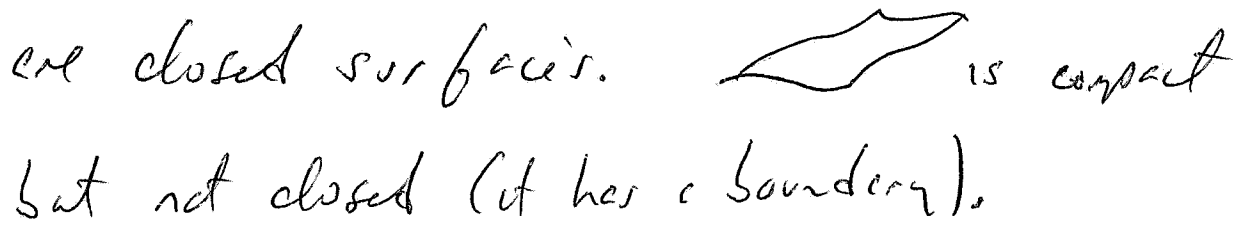 are closed surfaces. is compact
but not closed (it has a boundary).